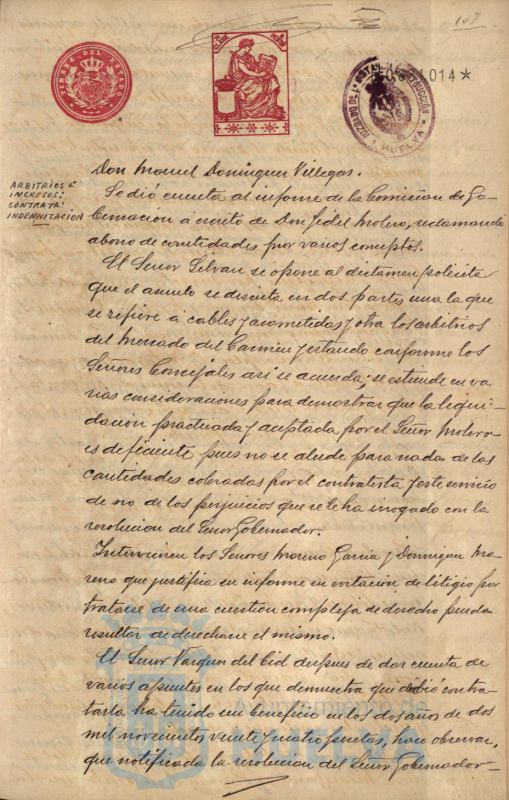 107
TIMBRE DEL ESTADO
014 *
JUZGADO DE 1ª INSTANCIA E INSTRUCCIÓN
* HUELVA *
ARBITRIOS E
INGRESOS:
CONTRATA:
INDEMNIZACION
Don Manuel Dominguez Villegas.
Se dió cuenta al informe de la Comision de Go-
bernacion a escrito de Don Fidel Molero, reclamando
abono de cantidades por varios conceptos.
El Señor Selvan se opone al dictamen y solicita
que el asunto se discuta en dos partes una la que
se refiere á cables y acometidas y otra los arbitrios
del Mercado del Carmen y estando conforme los
Señores Concejales así se acuerda; se extiende en va
rias consideraciones para demostrar que la liqui-
dación practicada y aceptada por el Señor Molero
es deficiente pues no se alude para nada de las
cantidades cobradas por el contratista y este servicio
de no de los perjuicios que se le ha irrogado con la
resolucion del Señor Gobernador.
Intervienen los Señores Moreno Garcia y Dominguez Mo
reno que justifica su informe en evitacion de litigio por
tratarse de una cuestion compleja de derecho pueda
resultar de desecharse el mismo.
El Señor Vazquez del Cid despues de dar cuenta de
varios apuntes en los que demuestra que debió contra-
tarla ha tenido un beneficio en los dos años de dos
mil novecientos veinte y cuatro pesetas, hace observar,
que notificada la resolucion del Señor Gobernador
Ayuntamiento de
HUELVA